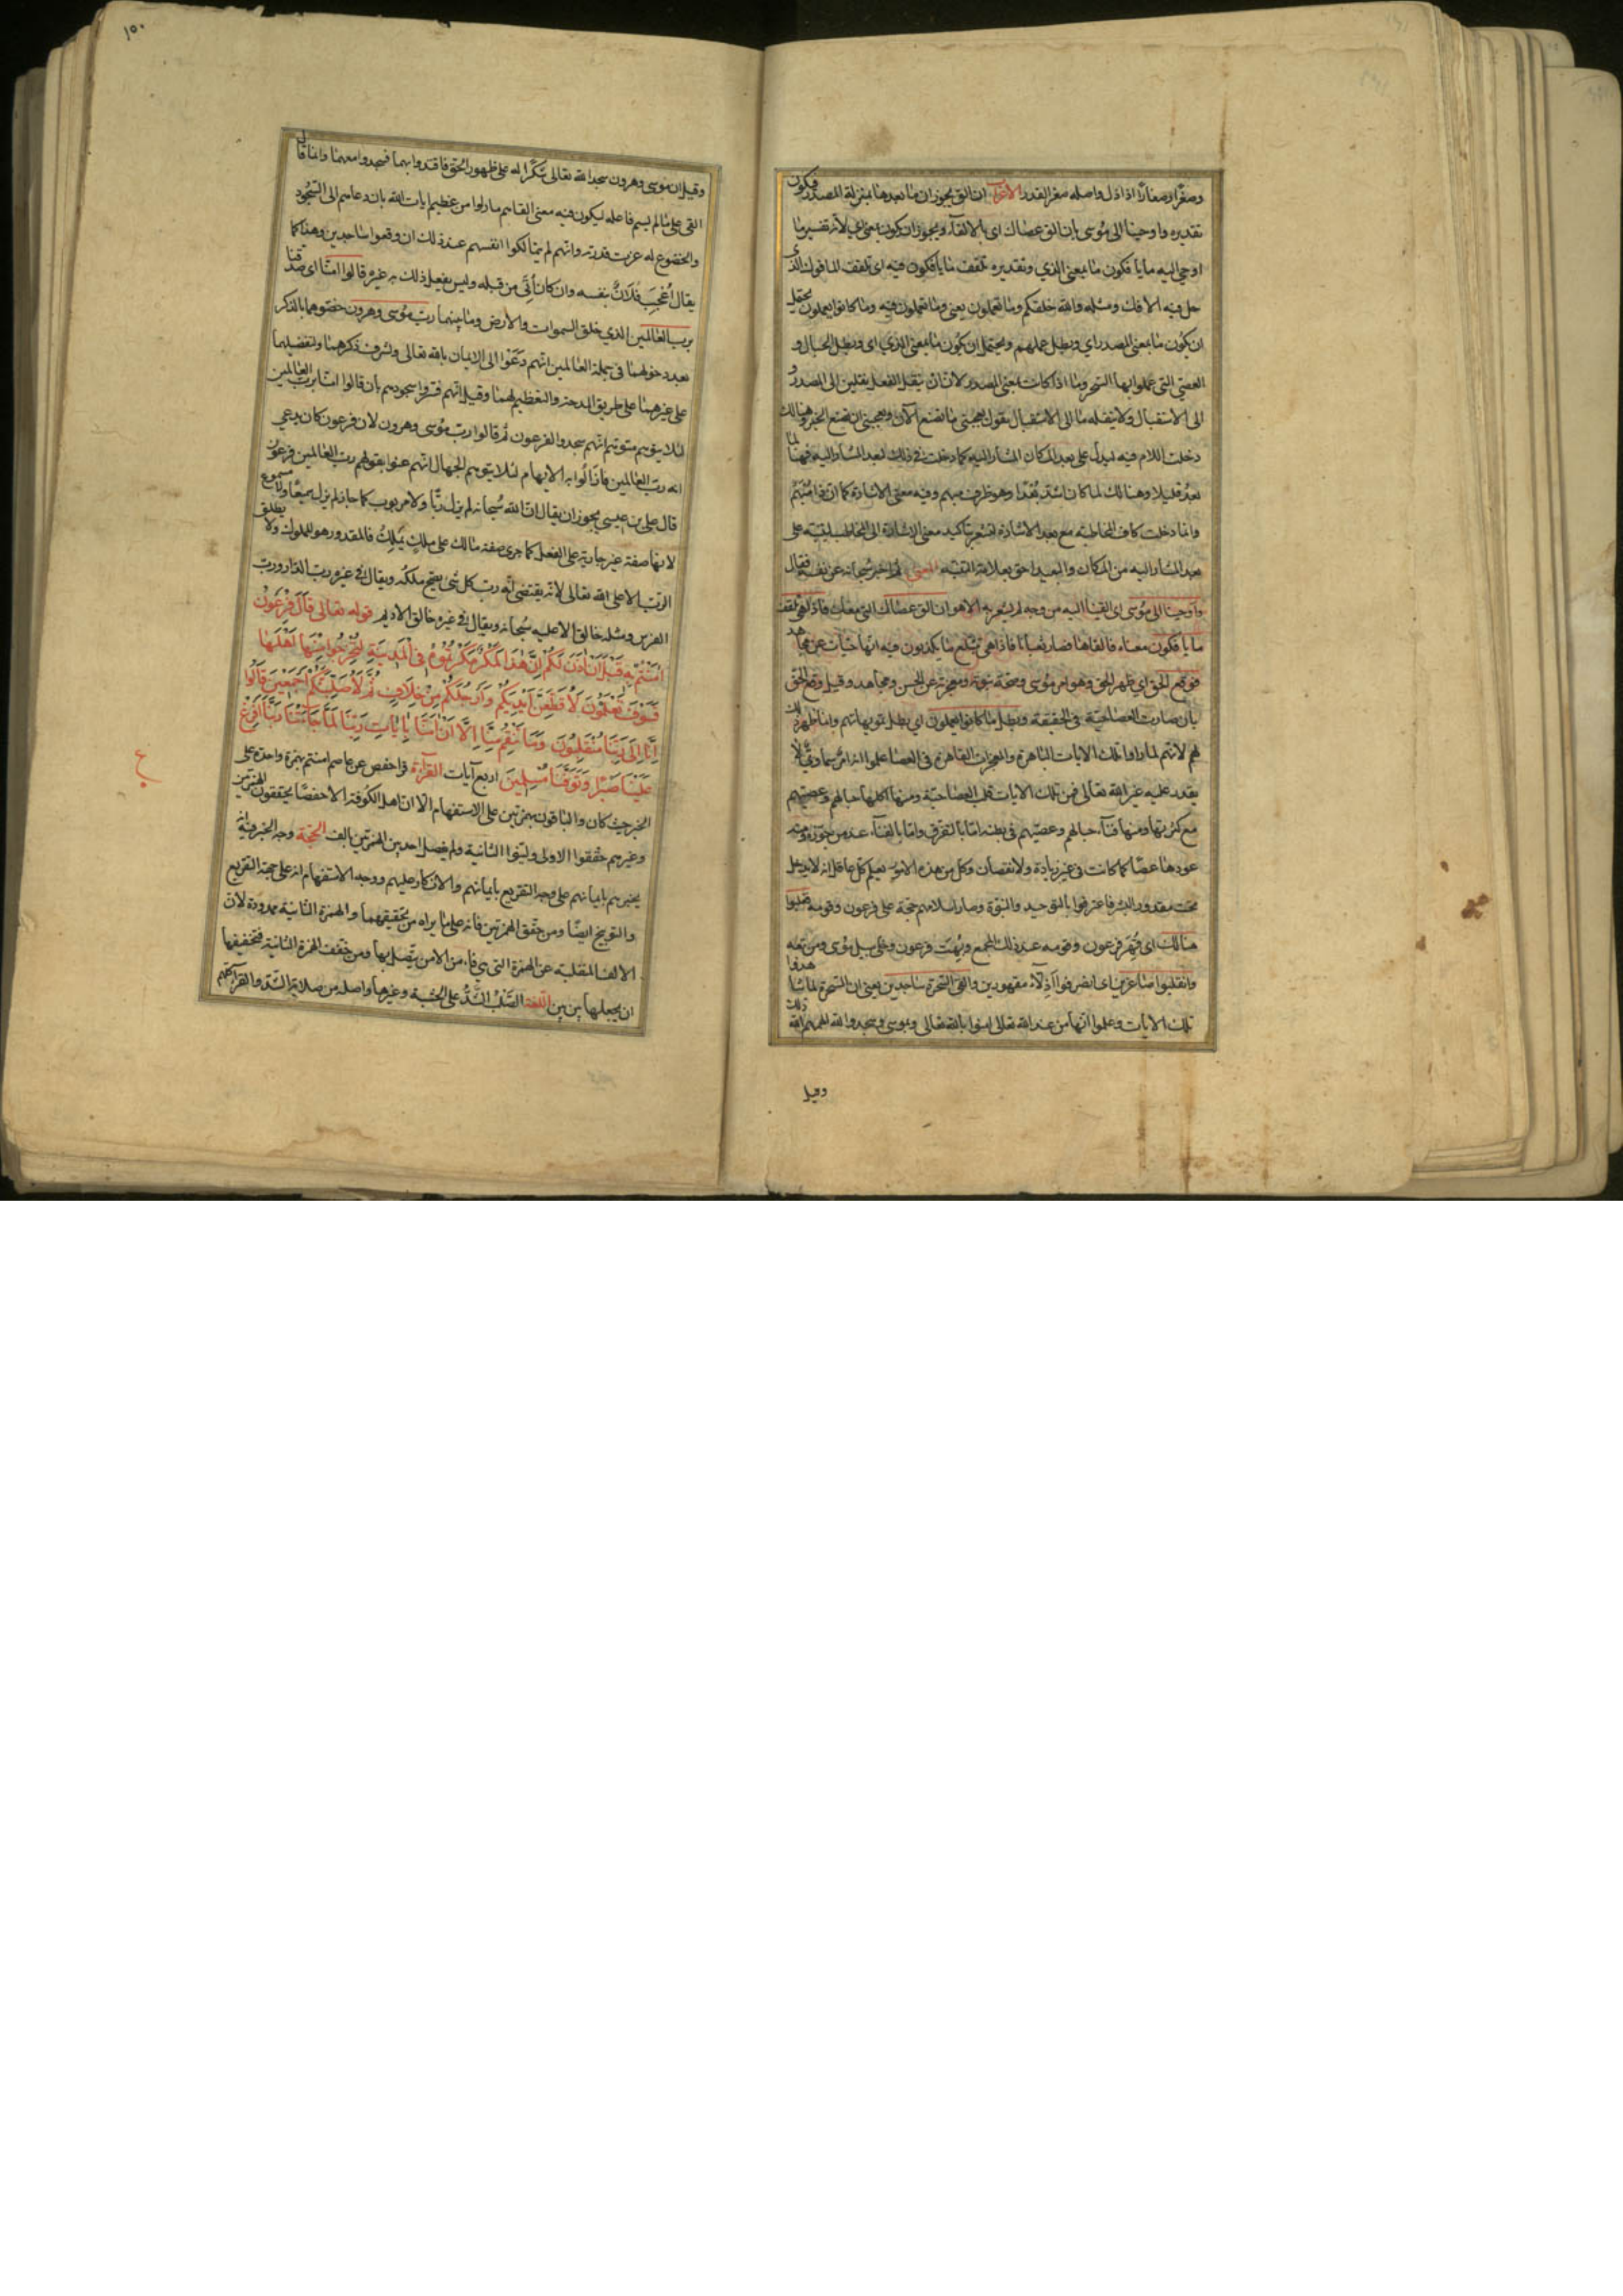 وصغرا وصغارا اذا ذل واصله صغر القدر الاعراب ان الق يجوز ان ما بعدها بمنزلة المصدر فيكون
تقديره واوحينا الى موسى بان الق عصاك اى بالالقاء ويجوز ان يكون بمعنى اي لانه تفسير ما
اوحي اليه ما يأفكون ما بمعنى الذي وتقديره تلقف ما يأفكون فيه اى تلقف المأفوك الذى
حل فيه الافك ومثله والله خلقكم وما تعملون يعنى وما تعملون فيه وما كانوا يعملون يحتمل
ان يكون ما بمعنى المصدر اي وبطل عملهم ويحتمل ان يكون ما بمعنى الذي اى وبطل الحبال و
العصي التى عملوا بها السحر وما اذا كانت بمعنى المصدر لان ان ينقل الفعل نقلين الى المصدر و
الى الاستقبال ولا ينقله ما الى الاستقبال تقول يعجبني ما تصنع الآن ويعجبني ان تصنع الخير وهنالك
دخلت اللام فيه ليدل على بعد المكان المشار اليه كما دخلت في ذلك لبعد المشار اليه فهنا لما
بعد قليلا وهنالك لما كان اشد بعدا وهو ظرف مبهم وفيه معنى الاشارة كما ان ذا مبهم
وانما دخلت كاف المخاطبة مع بعد الاشارة لتشعر بتاكيد معنى الاشارة الى المخاطب ليتنبه على
بعد المشار اليه من المكان والبعيد احق بعلامة التنبيه المعنى ثم اخبر سبحانه عن نفسه فقال
واوحينا الى موسى اى القينا اليه من وجه لم يشعر به الا هو ان الق عصاك التى معك فاذا هي تلقف
ما يأفكون معناه فالقاها فصارت ثعبانا فاذا هي تبتلع ما يكذبون فيه انها حيات عن مجاهد
فوقع الحق اي ظهر الحق وهو امر موسى وصحة نبوته ومعجزته عن الحسن ومجاهد وقيل وقع الحق
بان صارت العصا حية فى الحقيقة وبطل ما كانوا يعملون اي بطل تمويهاتهم وانما ظهر ذلك
لهم لانهم لما راوا تلك الايات الباهرة والمعجزات القاهرة فى العصا علموا انه امر سماوي لا
يقدر عليه غير الله تعالى فمن تلك الايات قلب العصا حية ومنها اكلها حبالهم وعصيهم
مع كثرتها ومنها فناء حبالهم وعصيهم فى بطنه اما بالتفرق واما بالفناء عند من جوزه ومنها
عودها عصا كما كانت من غير زيادة ولا نقصان وكل من هذه الامور يعلم كل عاقل انه لا يدخل
تحت مقدور البشر فاعترفوا بالتوحيد والنبوة وصار اسلامهم حجة على فرعون وقومه فغلبوا
هنالك اى قهر فرعون وقومه عند ذلك المجمع وبهت فرعون وخلى سبيل موسى ومن تبعه
وانقلبوا صاغرين اى انصرفوا اذلاء مقهورين والقى السحرة ساجدين يعنى ان السحرة لما شاهدوا
تلك الايات وعلموا انها من عند الله تعالى امنوا بالله تعالى وبموسى وسجدوا لله ذلك الهمهم الله
وقيل
١٥٠
وقيل ان موسى وهرون سجدا لله تعالى شكرا له على ظهور الحق فاقتدوا بهما فسجدوا معهما وانما قال
القى على ما لم يسم فاعله ليكون فيه معنى القاهم ما راوا من عظيم ايات الله بان دعاهم الى السجود
والخضوع له عزت قدرته وانهم لم يتمالكوا انفسهم عند ذلك ان وقعوا ساجدين وهذا كما
يقال اعجب فلان بنفسه وان كان اتي من قبله وليس يفعل ذلك به غيره قالوا امنا اى صدقنا
برب العالمين الذي خلق السموات والارض وما بينهما رب موسى وهرون خصوهما بالذكر
بعد دخولهما فى جملة العالمين انهم دعوا الى الايمان بالله تعالى ولشرف ذكرهما ولتفضيلهما
على غيرهما على طريق المدحة والتعظيم لهما وقيل انهم فسروا سجودهم بان قالوا امنا برب العالمين
لئلا يتوهم متوهم انهم سجدوا لفرعون ثم قالوا رب موسى وهرون لان فرعون كان يدعي
انه رب العالمين فازالوا به الايهام لئلا يتوهم الجهال انهم عنوا بقولهم رب العالمين فرعون
قال علي بن عيسى يجوز ان يقال ان الله سبحانه لم يزل ربا ولا مربوب كما جاز لم يزل سميعا ولا مسموع
لانها صفة غير جارية على الفعل كما جرى صفة مالك على ملك يملك فالمقدور هو المملوك ولا يطلق
الرب الا على الله تعالى لانه يقتضى انه رب كل شى يصح ملكه ويقال في غيره رب الدار ورب
الفرس ومثله خالق الا عليه سبحانه ويقال في غيره خالق الاديم قوله تعالى قال فرعون
امنتم به قبل ان اذن لكم ان هذا لمكر مكرتموه في المدينة لتخرجوا منها اهلها
فسوف تعلمون لاقطعن ايديكم وارجلكم من خلاف ثم لاصلبنكم اجمعين قالوا
انا الى ربنا منقلبون وما تنقم منا الا ان امنا بايات ربنا لما جاءتنا ربنا افرغ
علينا صبرا وتوفنا مسلمين اربع آيات القرآءة قرا حفص عن عاصم امنتم بهمزة واحدة على
الخبر حيث كان والباقون بهمزتين على الاستفهام الا ان اهل الكوفة الا حفصا يحققون الهمزتين
وغيرهم حققوا الاولى ولينوا الثانية ولم يفصل احد بين الهمزتين بالف الحجة وجه الخبر فيه انه
يخبرهم بايمانهم على وجه التقريع بايمانهم والانكار عليهم ووجه الاستفهام انه على جهة التقريع
والتوبيخ ايضا ومن حقق الهمزتين فانه على ما يراه من تحقيقهما والهمزة الثانية ممدودة لان
الالف المنقلبة عن الهمزة التى هي فاء من الامن يتصل بها ومن خفف الهمزة الثانية فتخفيفها
ان يجعلها بين بين اللغة الصلب الشد على الخشبة وغيرها واصله من صلابة الشد
٤